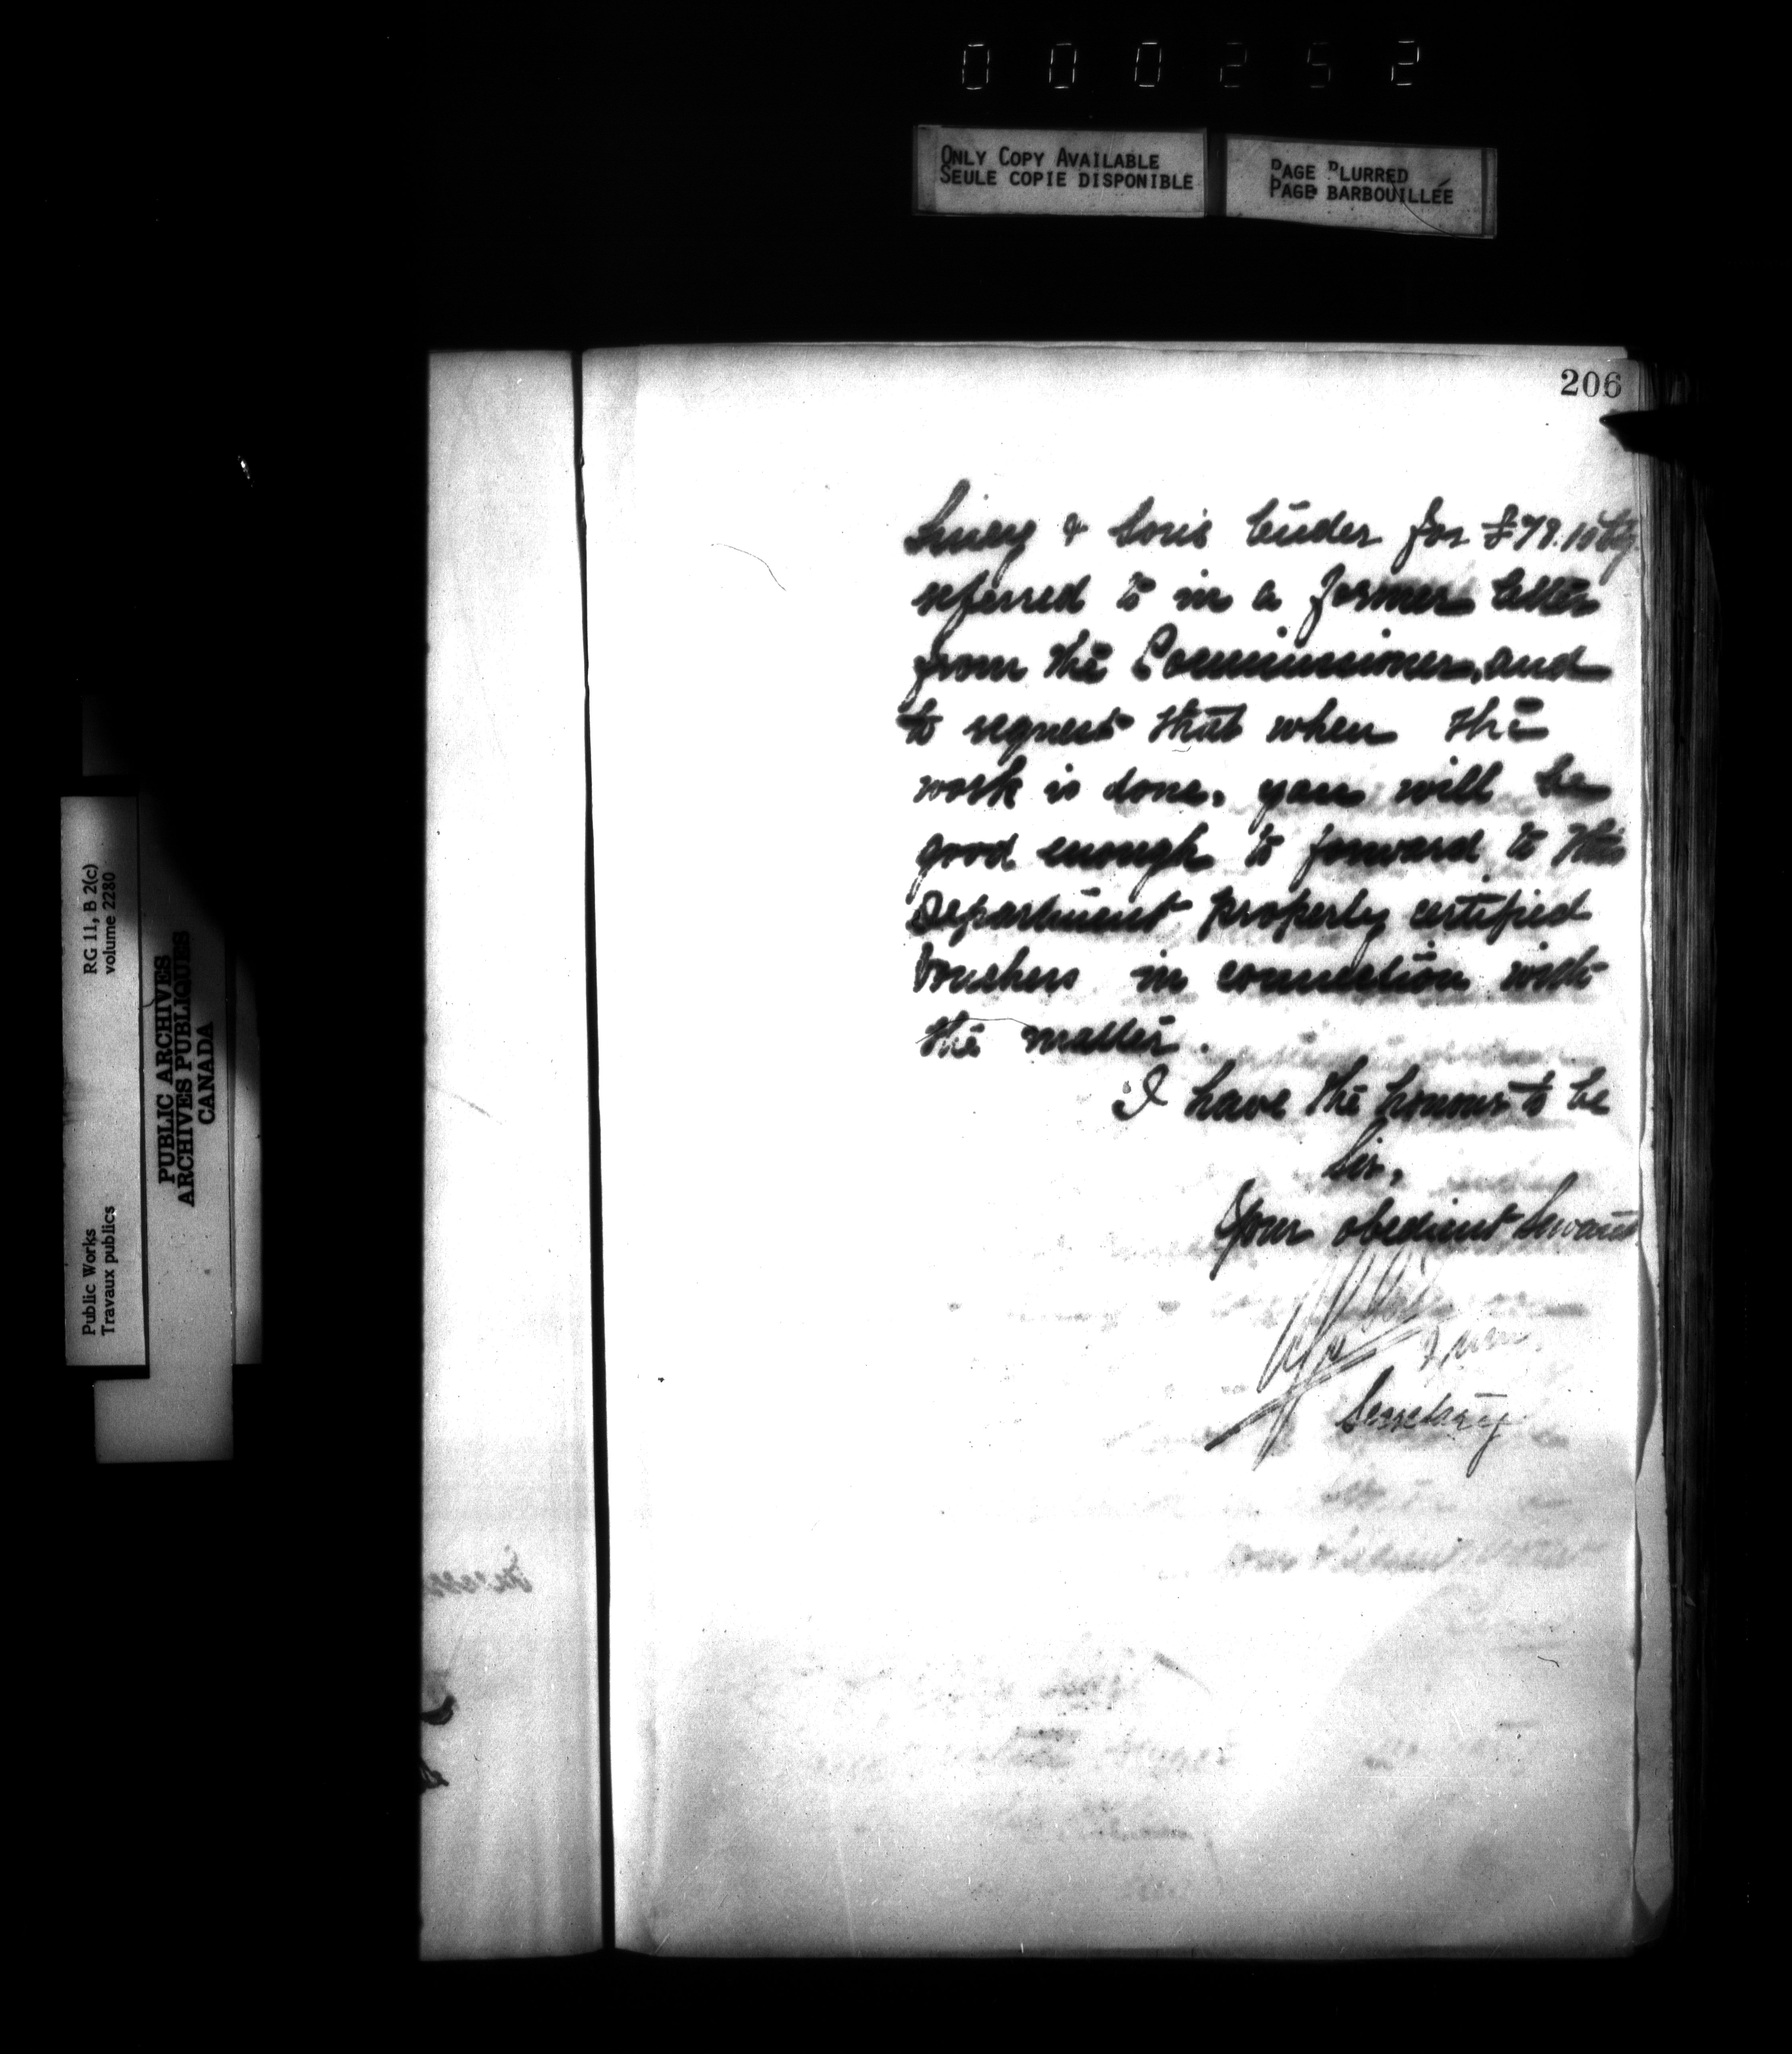 000252
ONLY COPY AVAILABLE
SEULE COPIE DISPONIBLE
PAGE BLURRED
PAGE BARBOUILLÉE
Public Works
Travaux publics
RG 11, B 2(c)
volume 2280
PUBLIC ARCHIVES
ARCHIVES PUBLIQUES
CANADA
206
& Sons tender for
referred to in a former letter
from the Commissioner, and
to request that when the
work is done, you will be
good enough to forward to this
Department properly certified
vouchers in connection with
the matter.
I have the honour to be
Sir,
Your obedient Servant
Secretary